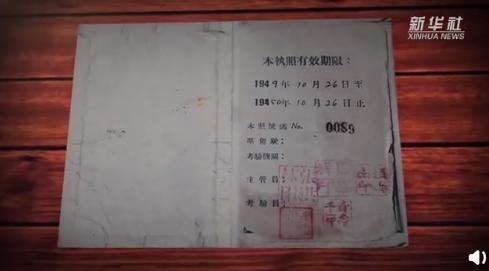 新华社
XINHUA NEWS
本執照有效期限：
1949年10月26日至
1950年10月26日止
本照號碼 No. 0089
準駕駛：
考驗機關：
主管員：
考驗員：